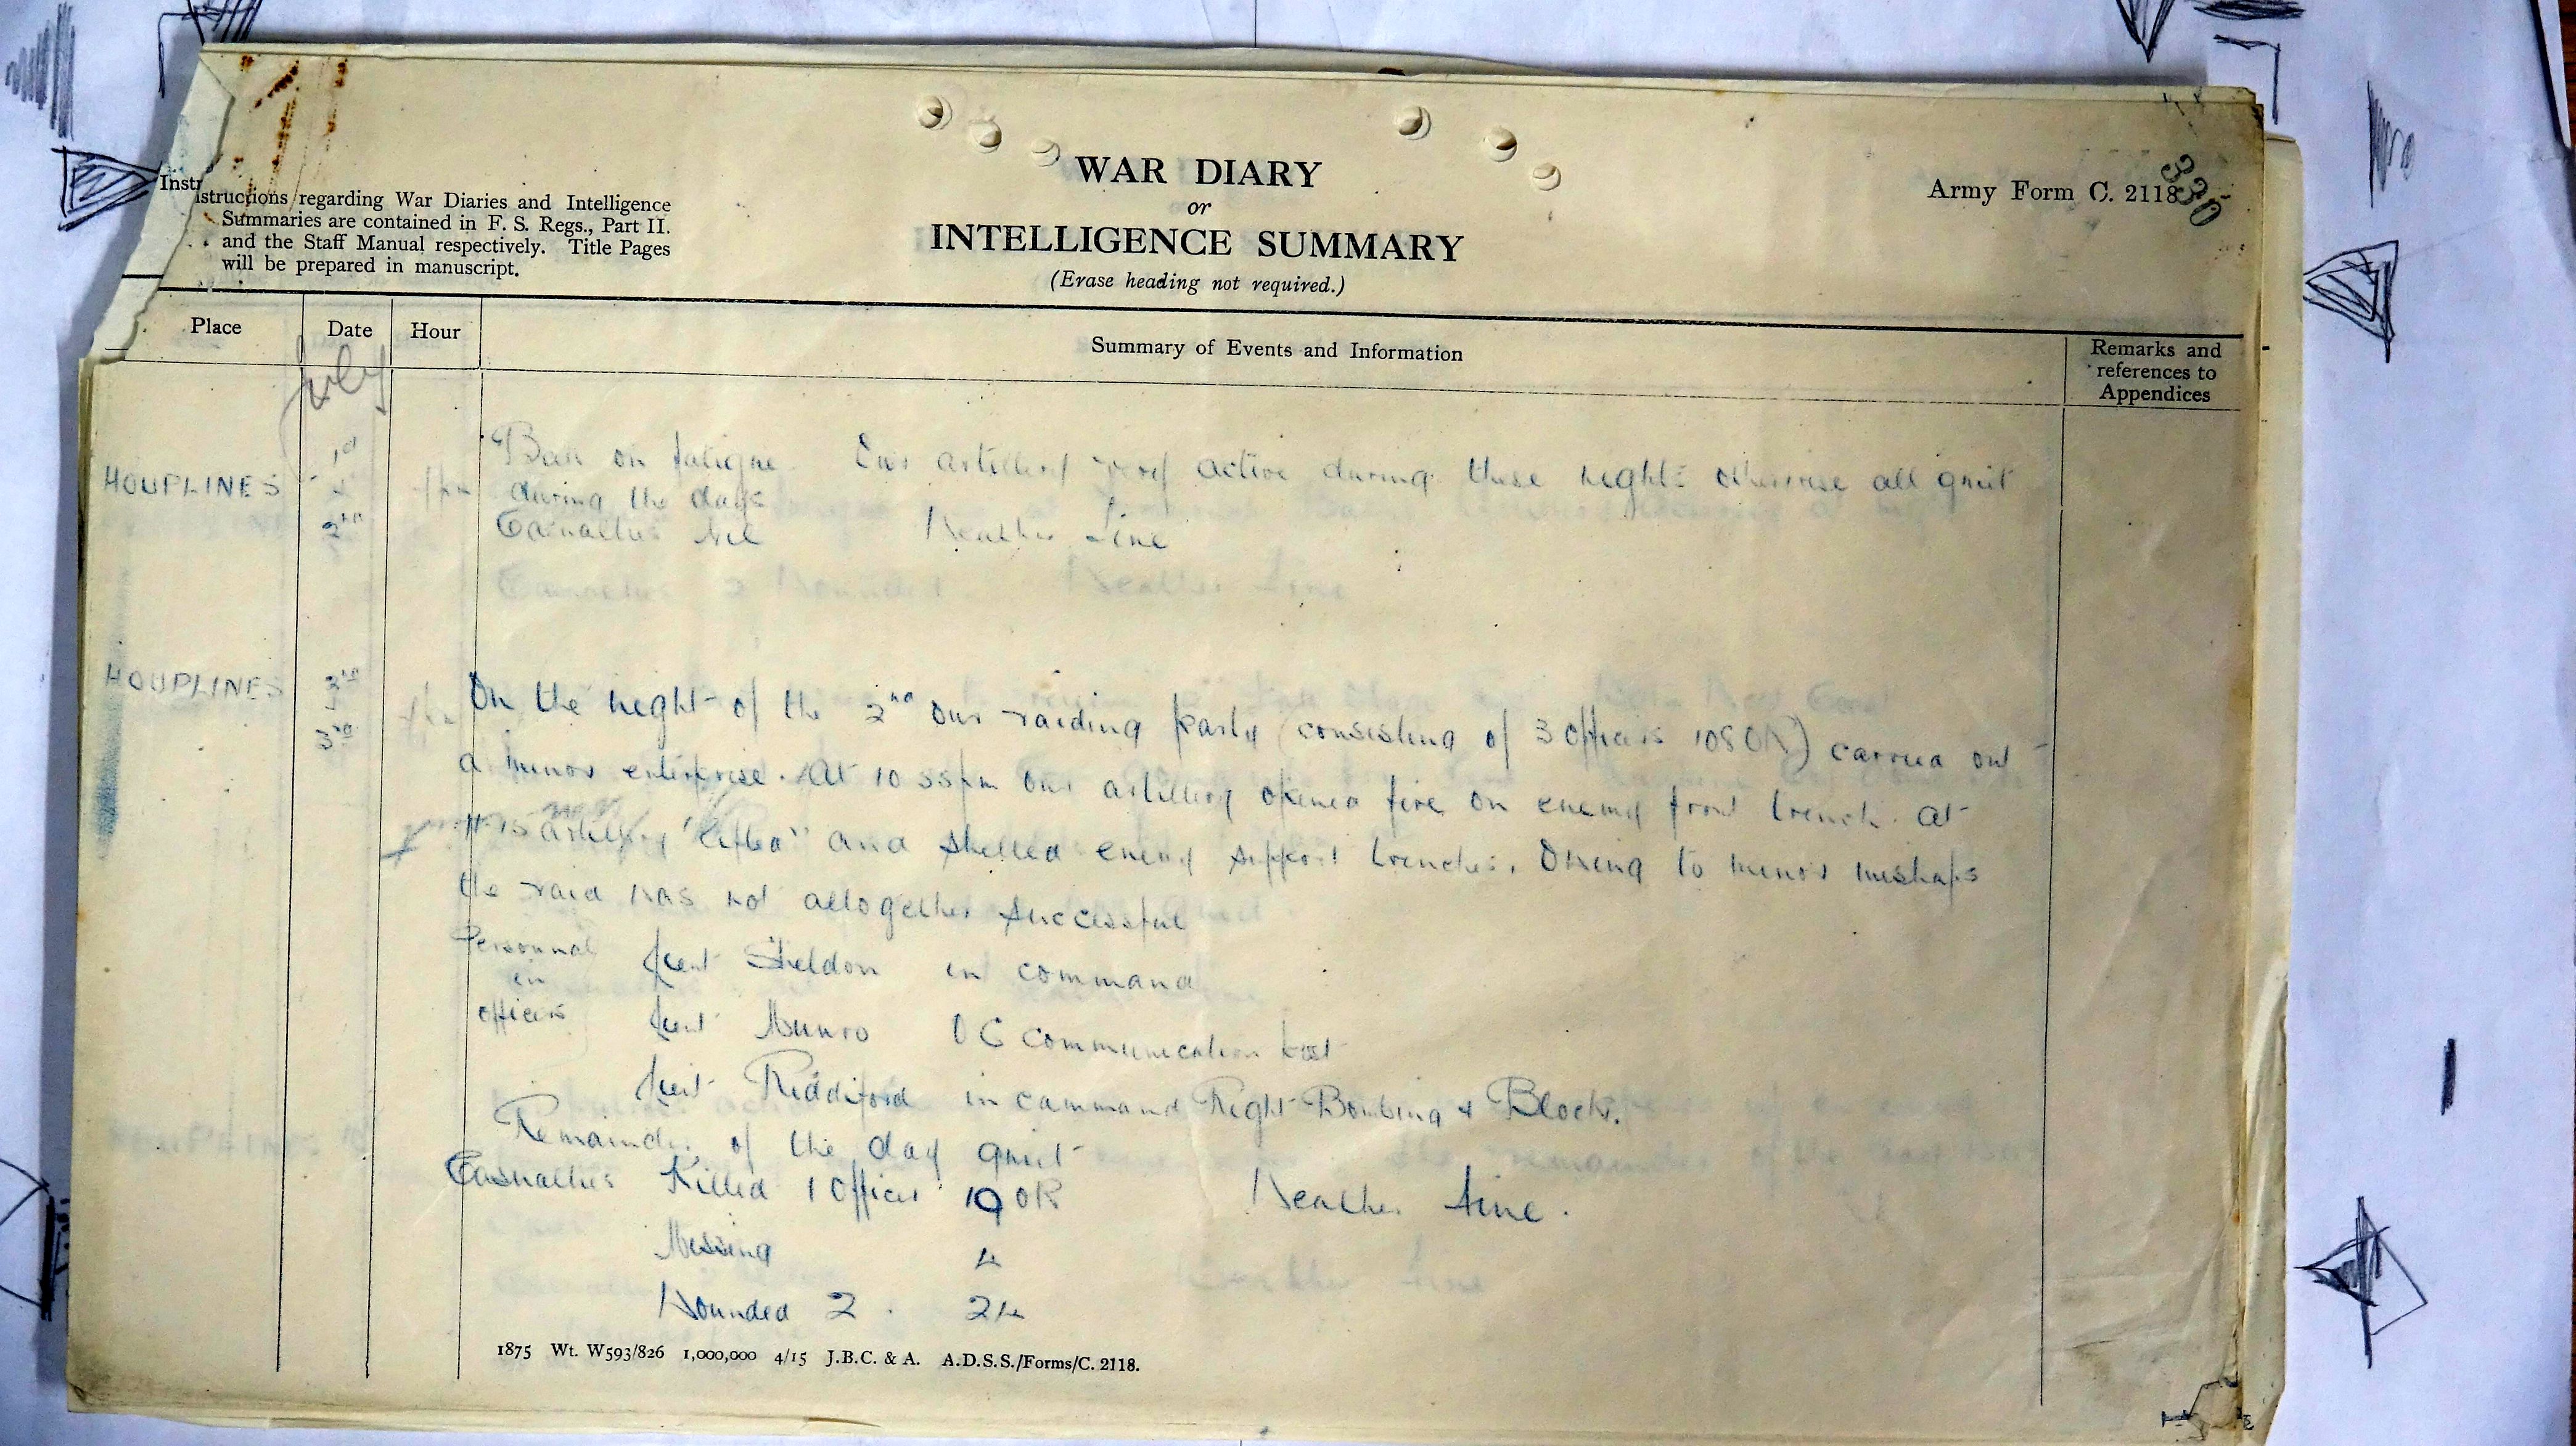 Instructions regarding War Diaries and Intelligence
Summaries are contained in F. S. Regs., Part II.
and the Staff Manual respectively. Title Pages
will be prepared in manuscript.
WAR DIARY
or
INTELLIGENCE SUMMARY
(Erase heading not required.)
Army Form C. 2118
330
Place
Date
Hour
Summary of Events and Information
Remarks and
references to
Appendices
July
HOUPLINES
1st
2nd
on fatigue. Our artillery very active during these nights otherwise all quiet
during the days
Casualties Nil Weather Fine
Casualties 2 Wounded. Weather Fine
HOUPLINES
3rd
3rd
On the night of the 2nd our raiding party (consisting of 3 Officers 108 OR) carried out
a minor enterprise. At 10 55 pm our artillery opened fire on enemy front trench. At
11-15 artillery "lifted" and shelled enemy support trenches. Owing to minor mishaps
the raid was not altogether successful
Personnal
in
officers
Lieut Sheldon in command
Lieut Munro O C communication post
Lieut Riddiford in command Right Bombing & Block.
Remainder of the day quiet
Casualties Killed 1 Officer 19 OR Weather Fine.
Missing 4
Wounded 2. 24
1875 Wt. W593/826 1,000,000 4/15 J.B.C. & A. A.D.S.S./Forms/C. 2118.